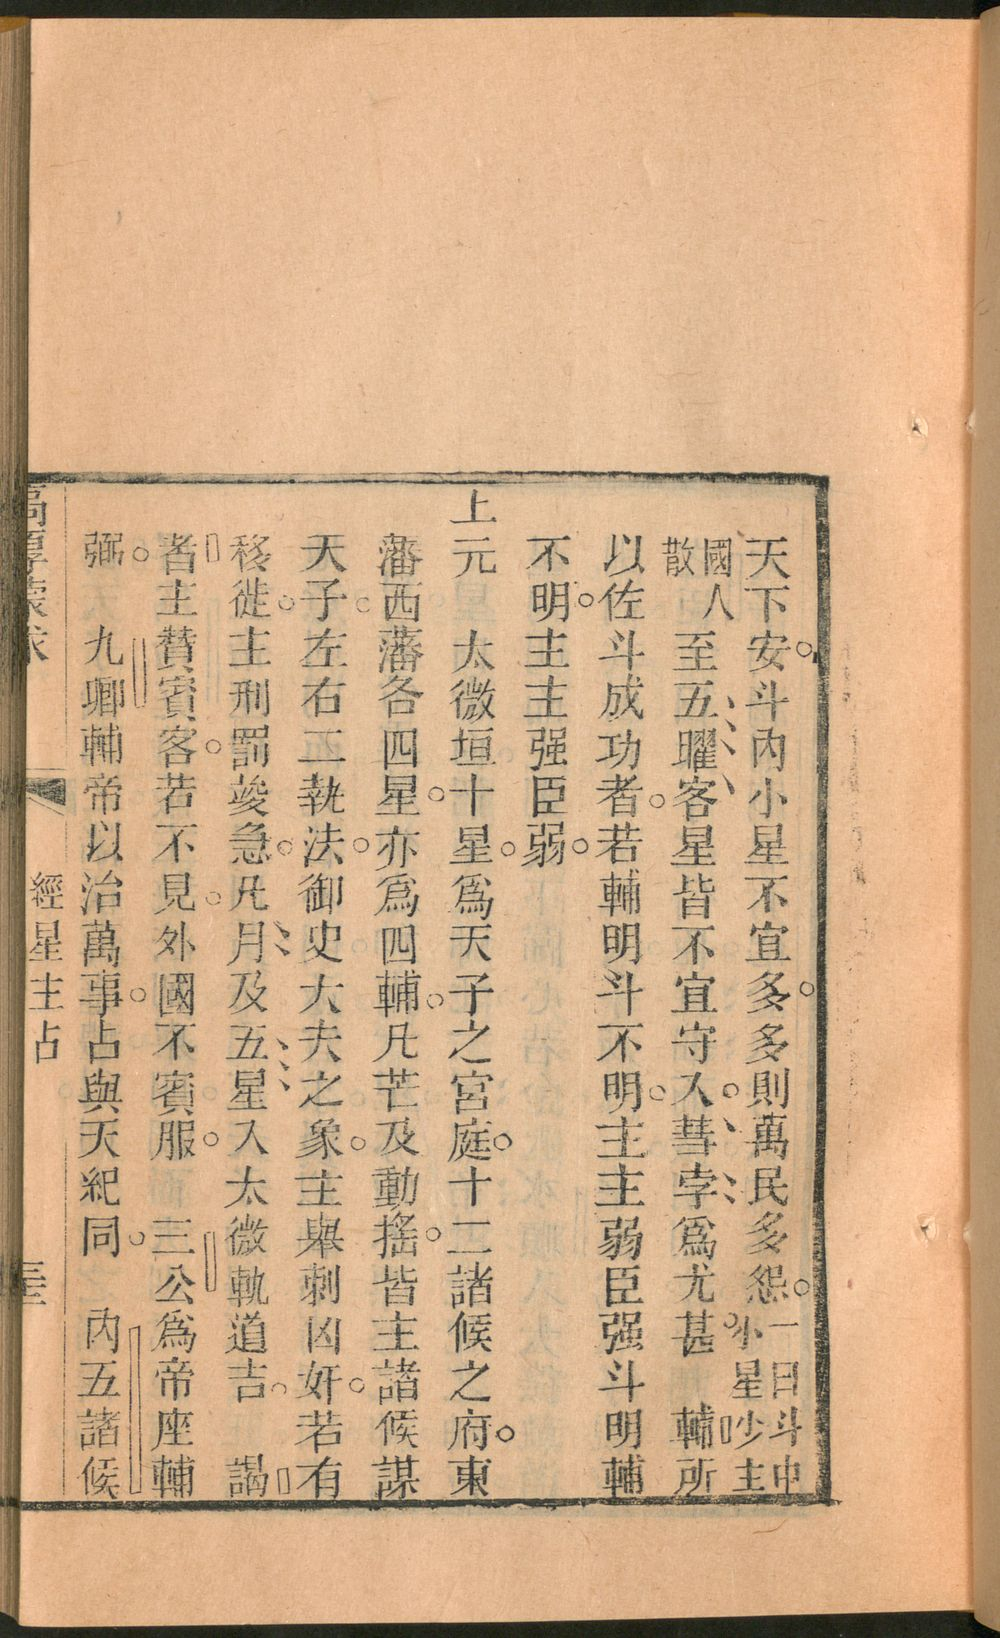 天下安斗內小星不宜多多則萬民多怨一曰斗中小星少主
國人散至五曜客星皆不宜守入彗孛爲尤甚　輔所
以佐斗成功者若輔明斗不明主主弱臣强斗明輔
不明主主强臣弱
上元　太微垣十星爲天子之宮庭十二諸候之府東
藩西藩各四星亦爲四輔凡芒及動搖皆主諸候謀
天子左右二執法御史大夫之象主舉刺凶奸若有
移徙主刑罰竣急凡月及五星入太微軌道吉　謁
者主贊賓客若不見外國不賓服　三公爲帝座輔
弼　九卿輔帝以治萬事占與天紀同　內五諸候
經星主占